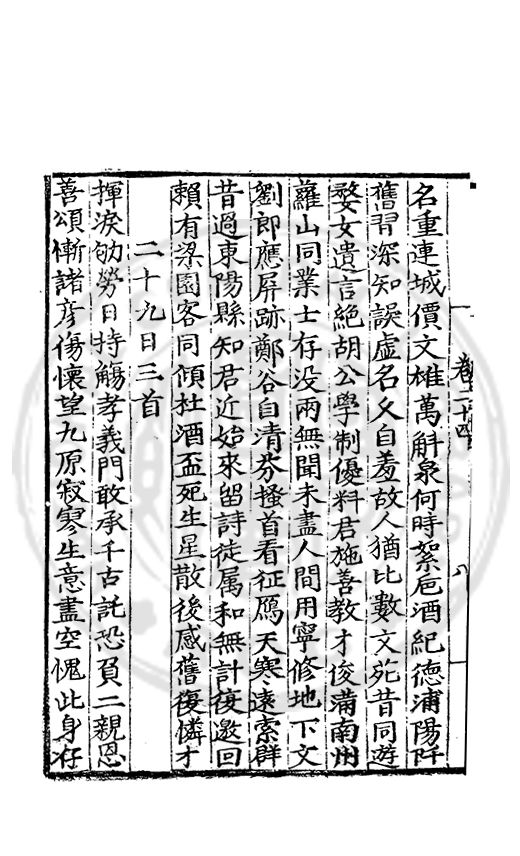 名重連城價文雄萬斛泉何時絮巵酒紀德浦陽阡
舊習深知誤虛名久自羞故人猶比數文苑昔同遊
婺女遺言絕胡公學制優料君施善教才俊滿南州
蘿山同業士存没兩無聞未盡人間用寧修地下文
劉郎應屏跡鄭谷自清芬搔首看征鴈天寒遠索群
昔過東陽縣知君近始來留詩徒属和無計復邀回
賴有梁園客同傾杜酒盃死生星散後感舊復憐才
二十九日三首
揮淚劬勞日持觴孝義門敢承千古託恐負二親恩
善頌慚諸彦傷懷望九原寂寥生意盡空愧此身存
卷二十四
八